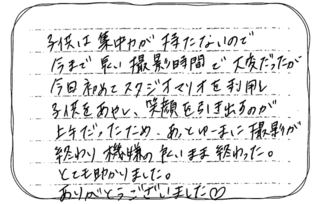 子供は集中力が持たないので
今まで長い撮影時間で大変だったが
今日初めてスタジオマリオを利用し
子供をあやし、笑顔を引き出すのが
上手だったため、あっとゆーまに撮影が
終わり機嫌の良いまま終わった。
とても助かりました。
ありがとうございました♡